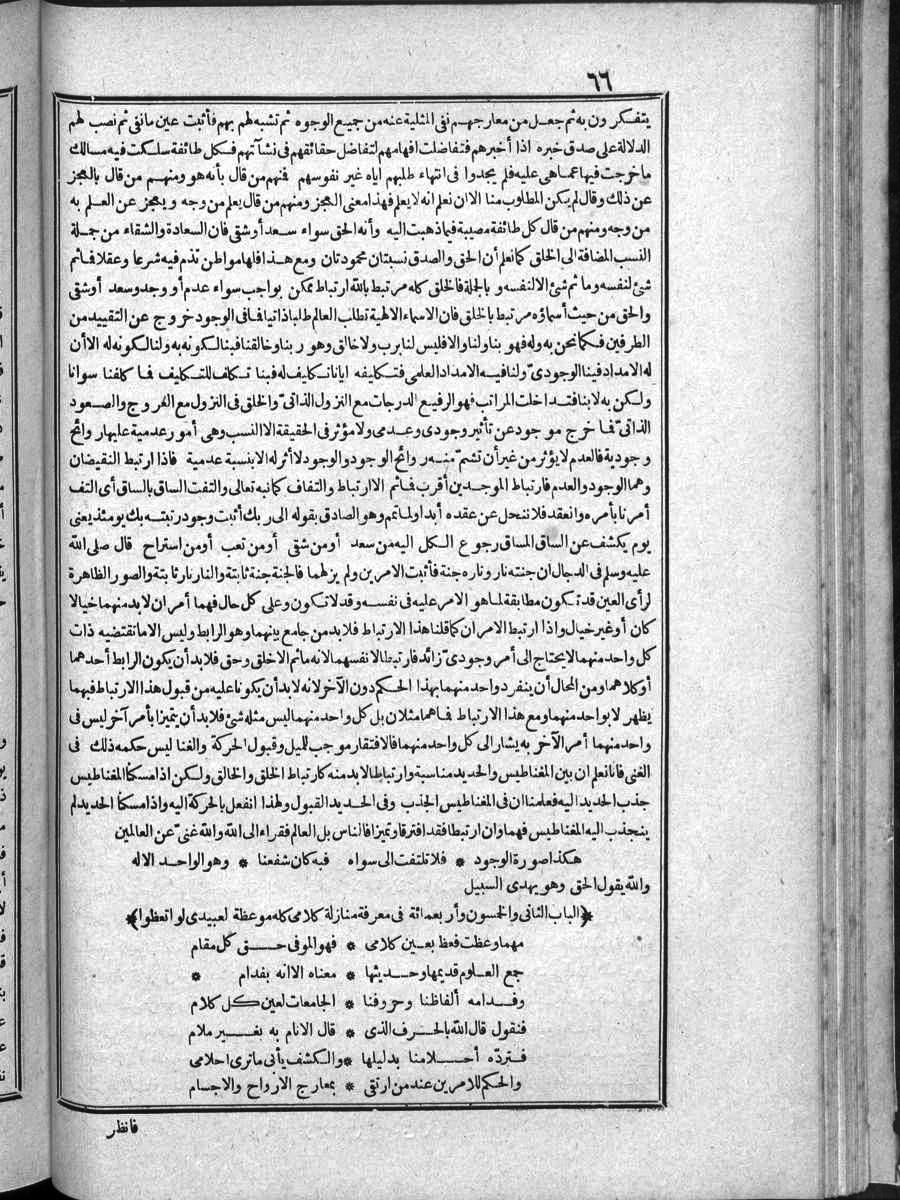 ٦٦
يتفكرون به ثم جعل من معارجهم نفي المثلية عنه من جميع الوجوه ثم تشبه لهم بهم فأثبت عين ما نفى ثم نصب لهم
الدلالة على صدق خبره اذا أخبرهم فتفاضلت افهامهم لتفاضل حقائقهم في نشآتهم فكل طائفة سلكت فيه مسالك
ماخرجت فيها عماهى عليه فلم يجدوا فى انتهاء طلبهم اياه غير نفوسهم فمنهم من قال بأنه هو ومنهم من قال بالعجز
عن ذلك وقال لم يكن المطلوب منا الا ان نعلم انه لا يعلم فهذا معنى العجز ومنهم من قال يعلم من وجه ويعجز عن العلم به
من وجه ومنهم من قال كل طائفة مصيبة فيما ذهبت اليه وأنه الحق سواء سعد أو شقى فان السعادة والشقاء من جملة
النسب المضافة الى الخلق كما نعلم أن الحق والصدق نسبتان محمودتان ومع هذا فلها مواطن تذم فيه شرعا وعقلا فاثم
شئ لنفسه وما ثم شئ الا لنفسه و بالجملة فالخلق كله مرتبط بالله ارتباط ممكن بواجب سواء عدم أو وجد وسعد أوشقى
والحق من حيث أسماؤه مرتبط بالخلق فان الاسماء الالهية تطلب العالم طلباذاتيا فافى الوجود خروج عن التقييد من
الطرفين فكما نحن به وله فهو بنا ولنا والا فليس لنا برب ولا خالق وهو ربنا وخالقنا فبنا لكونه به ولنا لكونه له الاأن
له الامداد فينا الوجودىّ ولنا فيه الامداد العلمى فتكليفه ايانا تكليف له فبنا تكلف للتكليف فما كلفنا سوانا
ولكن به لابنا فتداخلت المراتب فهو الرفيع الدرجات مع النزول الذاتىّ والخلق فى النزول مع العروج والصعود
الذاتىّ فما خرج موجود عن تأثير وجودى وعدمى ولا مؤثر فى الحقيقة الا النسب وهى أمور عدمية عليها روائح
وجودية فالعدم لا يؤثر من غير أن تشمّ منه روائح الوجود والوجود لا أثر له الا بنسبة عدمية فاذا ارتبط النقيضان
وهما الوجود والعدم فارتباط الموجدين أقرب فاثم الا ارتباط والتفاف كما نبه تعالى والتفت الساق بالساق أى التف
أمرنا بأمره وانعقد فلا ننحل عن عقده أبدا ولما تم وهو الصادق بقوله الى ربك أثبت وجود رتبته بك يومئذ يعنى
يوم يكشف عن الساق المساق رجوع الكل اليه من سعد أو من شقى أو من تعب أو من استراح قال صلى الله
عليه وسلم فى الدجال ان جنته نار وناره جنة فأثبت الامرين ولم يزلهما فالجنة جنة ثابتة والنار نار ثابتة والصور الظاهرة
لرأى العين قد تكون مطابقة لما هو الامر عليه فى نفسه وقد لا تكون وعلى كل حال فهما أمران لابد منهما خيالا
كان أو غير خيال واذا ارتبط الامران كما قلنا هذا الارتباط فلابد من جامع بينهما وهو الرابط وليس الا ما تقتضيه ذات
كل واحد منهما لا يحتاج الى أمر وجودىّ زائد فارتبطا لانفسهما لانه ما ثم الا خلق وحق فلابد أن يكون الرابط أحدهما
أو كلاهما ومن المحال أن ينفرد واحد منهما بهذا الحكم دون الآخر لانه لابد أن يكونا عليه من قبول هذا الارتباط فبهما
يظهر لا بواحد منهما ومع هذا الارتباط فاهما مثلان بل كل واحد منهما ليس مثله شئ فلابد أن يتميزا بأمر آخر ليس فى
واحد منهما أمر الآخر به يشار الى كل واحد منهما فالافتقار موجب للميل وقبول الحركة والغنا ليس حكمه ذلك فى
الغنى فانا نعلم ان بين المغناطيس والحديد مناسبة وارتباطا لابد منه كارتباط الخلق والخالق ولكن اذا مسكنا المغناطيس
جذب الحديد اليه فعلمنا ان فى المغناطيس الجذب وفى الحديد القبول ولهذا انفعل بالحركة اليه واذا مسكنا الحديد لم
ينجذب اليه المغناطيس فهما وان ارتبطا فقد افترقا وتميزا فالناس بل العالم فقراء الى الله والله غنىّ عن العالمين
هكذا صورة الوجود * فلا تلتفت الى سواه فبه كان شفعنا * وهو الواحد الاله
والله يقول الحق وهو يهدى السبيل
﴿الباب الثانى والخمسون وأربعمائة فى معرفة منازلة كلامى كله موعظة لعبيدى لو اتعظوا﴾
مهما وعظت فعظ بعين كلامى * فهو الموفى حق كل مقام
جمع العلوم قديمها وحديثها * معناه الا انه بفدام *
وفدامه ألفاظنا وحروفنا * الجامعات لعين كل كلام
فنقول قال الله بالحرف الذى * قال الانام به بغير ملام
فتردّه أحلامنا بدليلها * والكشف يأبى ما ترى احلامى
والحكم للامرين عند من ارتقى * بمعارج الارواح والاجسام
فانظر